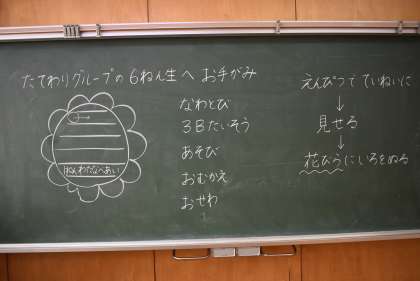 たてわりグループの6ねん生へ お手がみ
なわとび
3Bたいそう
あそび
おむかえ
おせわ
えんぴつで ていねいに
↓
見せる
↓
花びらにいろをぬる